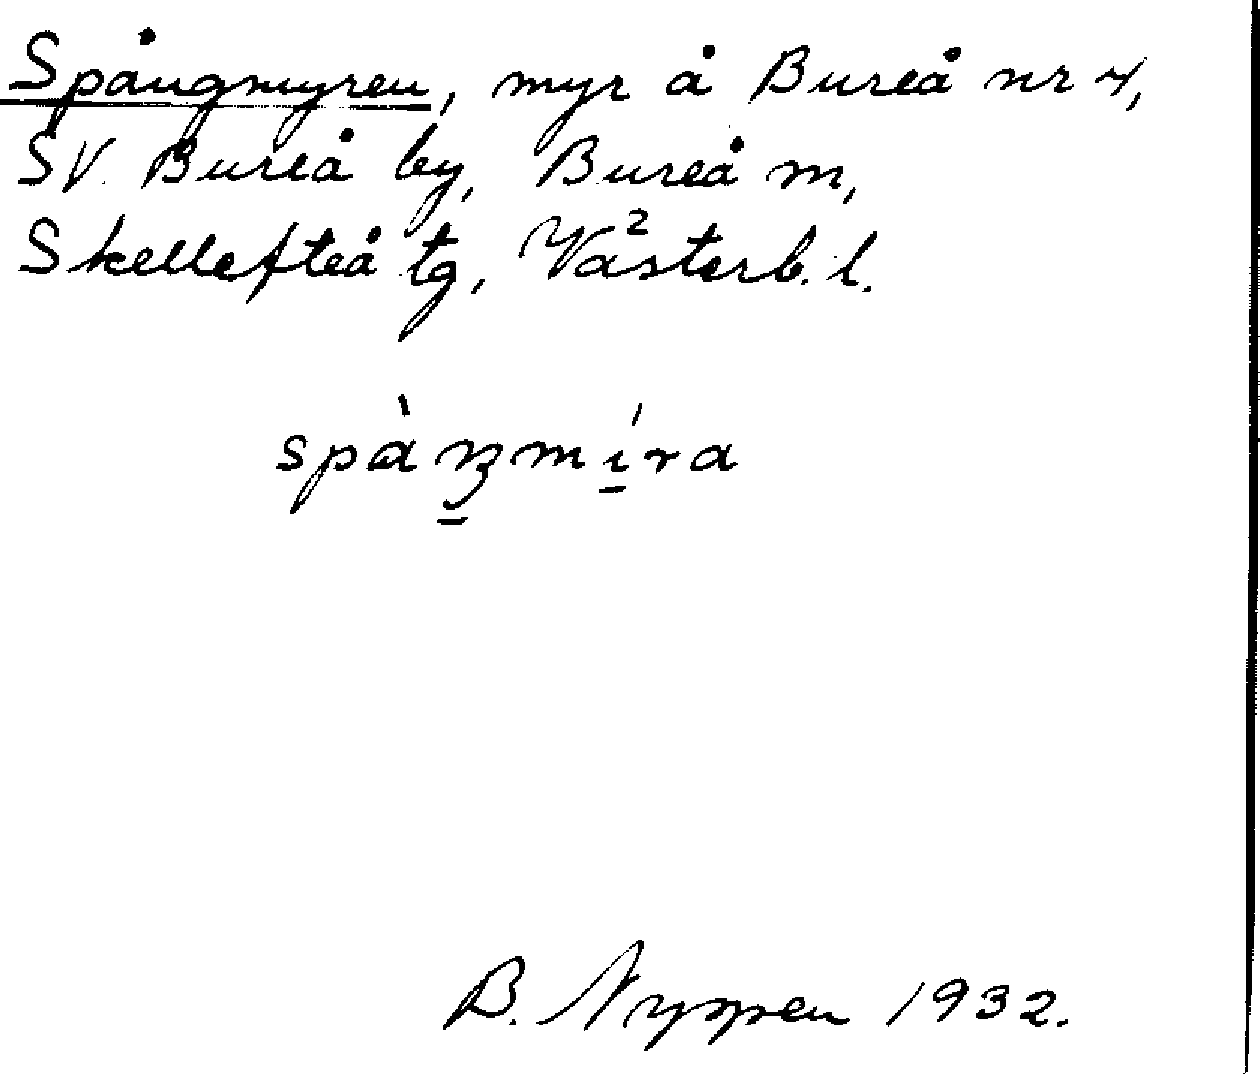 Spångmyren, myr å Bureå nr 4,
SV. Bureå by, Bureå m,
Skellefteå tg, Västerb. l.
B. 1932.